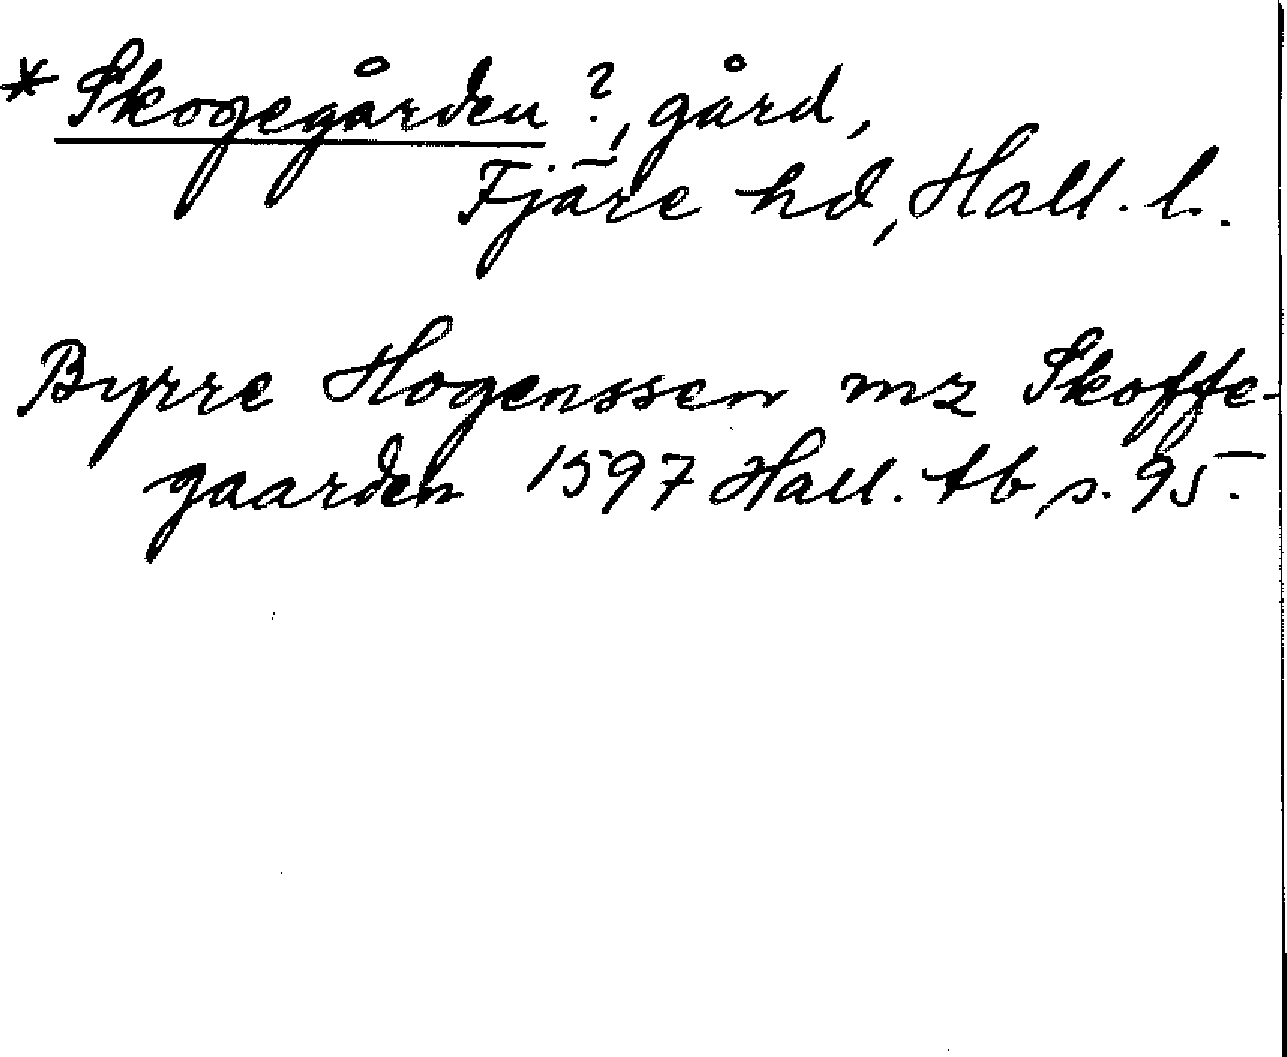 * Skogegården ?, gård,
Fjäre hd, Hall. l.
Byrre Hogenssen mz Skoffe-
gaarden 1597 Hall. tb s. 95.